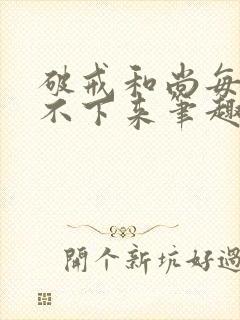 破戒和尚每
不下来笔趣
開个新坑好過